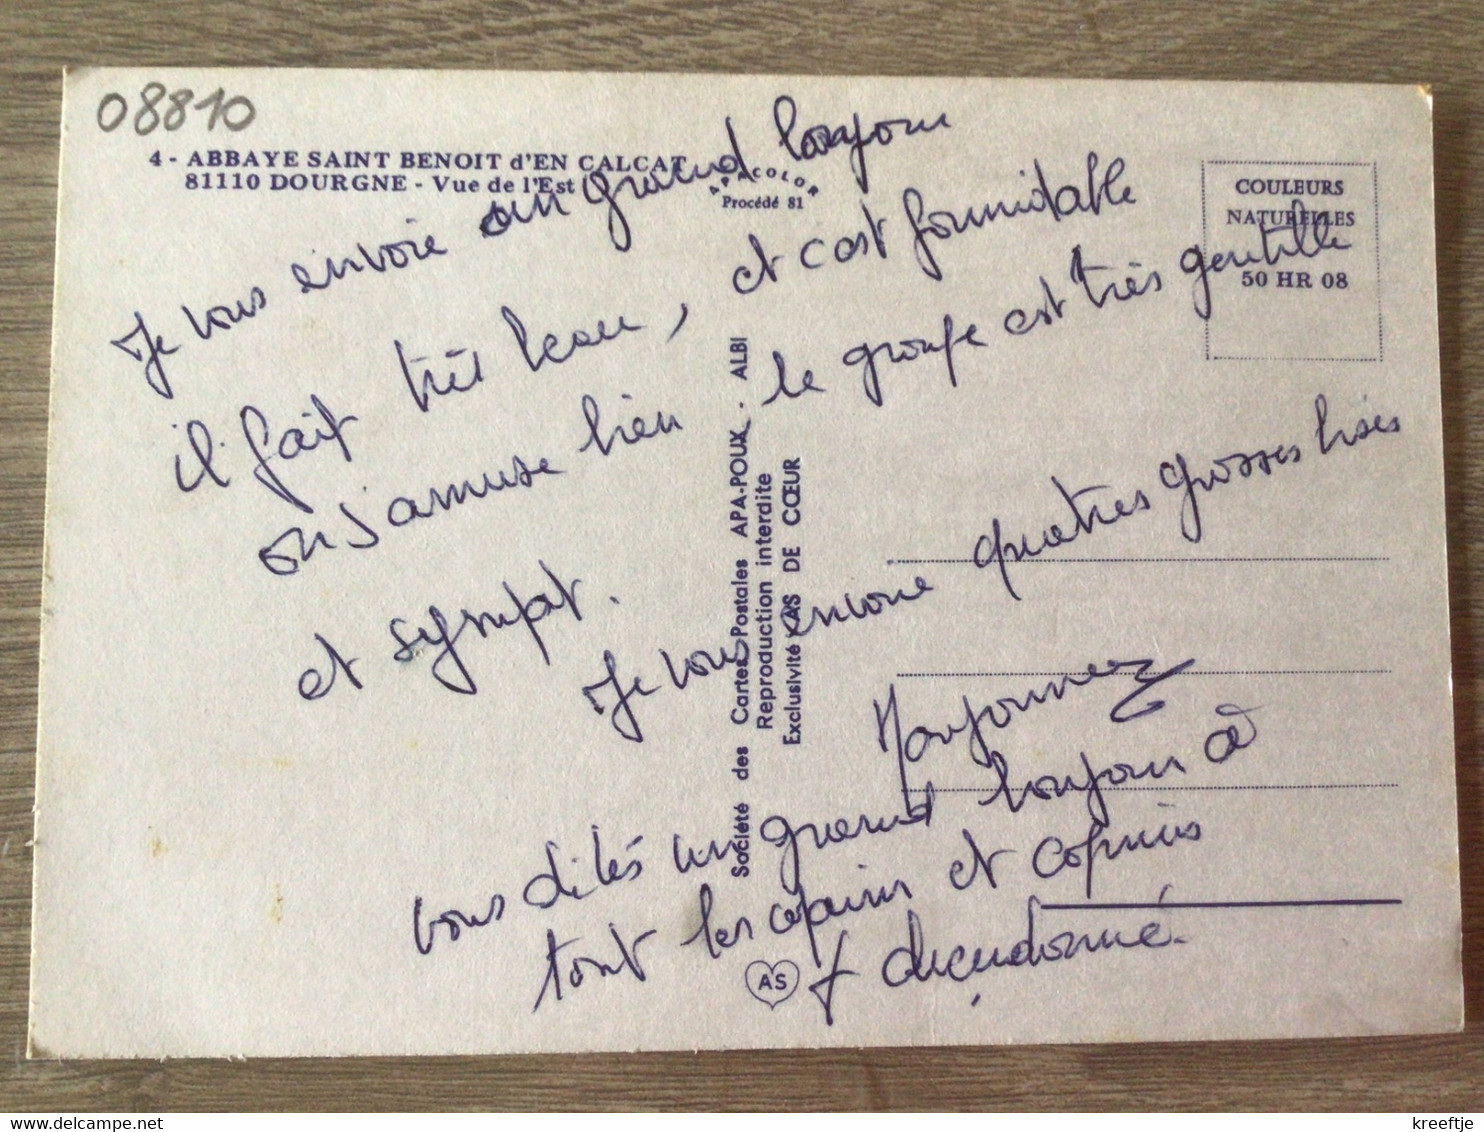 08810
4 - ABBAYE SAINT BENOIT d'EN CALCAT
81110 DOURGNE - Vue de l'Est
APACOLOR
Procédé 81
COULEURS
NATURELLES
50 HR 08
Je vous envoie un grand bonjour
il fait très beau, et c'est formidable
on s'amuse bien. le groupe est très gentille
et sympat.
Je vous envoie quatres grosses bises
vous dites un grand bonjour à
tout les copains et copines
Société des Cartes Postales APA-POUX. ALBI
Reproduction interdite
Exclusivité AS DE CŒUR
AS